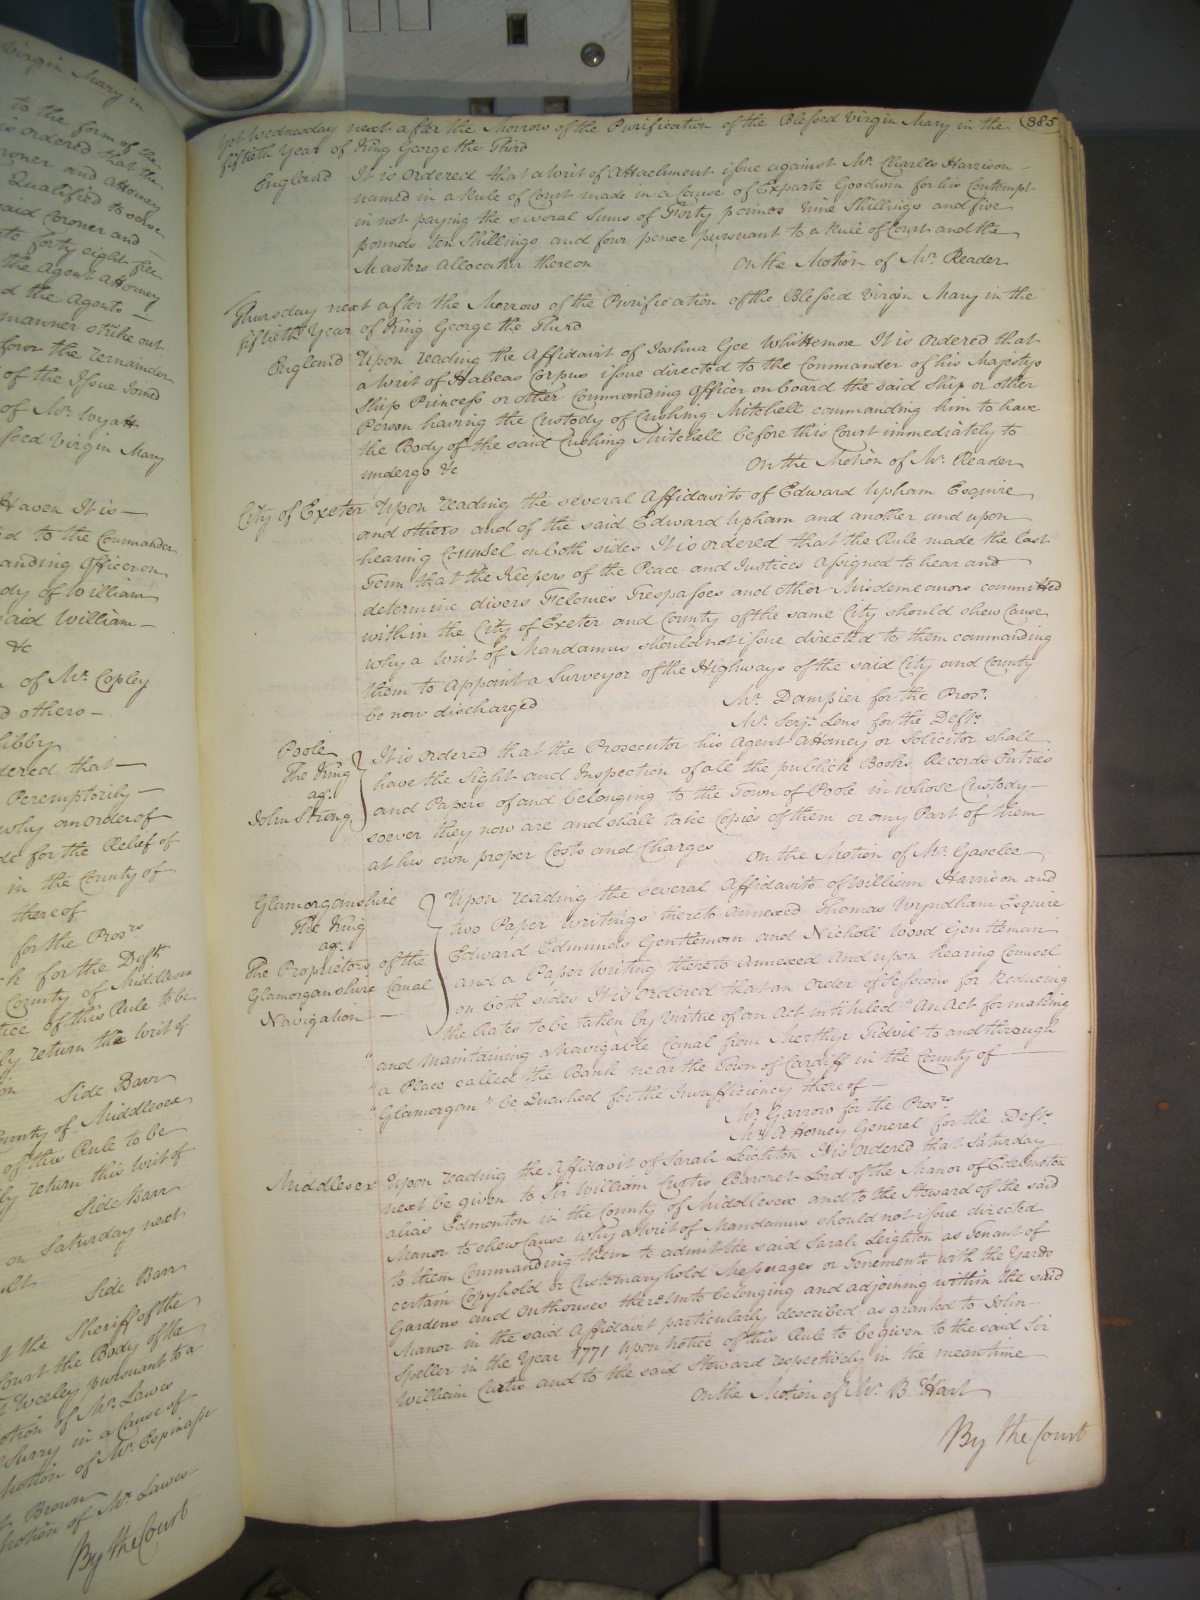 Virgin Mary in
to the form of the
is ordered that the
Coroner and Attorney
Qualified to serve
said Coroner and
forty eight free
the Agent Attorney
d the Agents
manner strike out
form the remainder
of the Issue Joined
of Mr. Wyatt
ssed Virgin Mary
Haven It is
d to the Commander
anding Officer on
dy of William
aid William
&c
of Mr. Copley
d others
libby
dered that
Peremptorily
why an order of
de for the Relief of
in the County of
thereof
for the Prosr.
k for the Deft.
County of Middlesex
tice of this Rule to be
ly return the writ of
Side Barr
County of Middlesex
of this Rule to be
ly return this writ of
Side Barr
on Saturday next
Side Barr
t the Sheriff of the
Court the Body of the
Weeley pursuant to a
otion of Mr. Lawes
Surry in a Cause of
Motion of Mr. Espinasse
Brown
Motion of Mr. Lawes
By the Court
385
Yet Wednesday next after the Morrow of the Purification of the Blessed Virgin Mary in the
fiftieth Year of King George the Third
England It is Ordered that a Writ of Attachment issue against Mr. Charles Harrison
named in a Rule of Court made in a Cause of Exparte Goodwin for his Contempt
in not paying the several Sums of Forty pounds nine Shillings and five
pounds ten Shillings and four pence pursuant to a Rule of Court and the
Masters Allocatur thereon On the Motion of Mr. Reader
Thursday next after the Morrow of the Purification of the Blessed Virgin Mary in the
fiftieth Year of King George the Third
England Upon reading the Affidavit of Joshua Gee Whittemore It is Ordered that
a Writ of Habeas Corpus issue directed to the Commander of his Majestys
Ship Princess or other Commanding Officer on board the said Ship or other
Person having the Custody of Cushing Mitchell commanding him to have
the Body of the said Cushing Mitchell before this Court immediately to
undergo &c On the Motion of Mr. Reader
City of Exeter Upon reading the several Affidavits of Edward Upham Esquire
and others and of the said Edward Upham and another and upon
hearing Counsel on both sides It is ordered that the Rule made the last
Term that the Keepers of the Peace and Justices Assigned to hear and
determine divers Felonies Trespasses and other Misdemeanors committed
within the City of Exeter and County of the same City should shew Cause
why a Writ of Mandamus should not issue directed to them commanding
them to Appoint a Surveyor of the Highways of the said City and County
be now discharged Mr. Dampier for the Prosr.
Mr. Serjt. Lens for the Defts.
Poole
The King
agt.
John Strong
It is Ordered that the Prosecutor his Agent Attorney or Solicitor shall
have the Sight and Inspection of all the publick Books Records Entries
and Papers of and belonging to the Town of Poole in whose Custody
soever they now are and shall take Copies of them or any Part of them
at his own proper Costs and Charges On the Motion of Mr. Gaselee
Glamorganshire
The King
agt.
The Proprietors of the
Glamorganshire Canal
Navigation
Upon reading the several Affidavits of William Harrison and
two Paper Writings thereto annexed Thomas Wyndham Esquire
Edward Edmunds Gentleman and Nicholl Wood Gentleman
and a Paper Writing thereto Annexed and upon hearing Counsel
on both sides It is Ordered that an Order of Sessions for Reducing
the Rates to be taken by Virtue of an Act intituled "An Act for making
"and Maintaining a Navigable Canal from Merthyr Tidvil to and through
"a Place called the Bank near the Town of Cardiff in the County of
"Glamorgan" be Quashed for the Insufficiency thereof
Mr. Garrow for the Prosr.
Mr. Attorney General for the Defts.
Middlesex Upon reading the Affidavit of Sarah Leighton It is Ordered that Saturday
next be given to Sir William Curtis Baronet Lord of the Manor of Edelmeton
alias Edmonton in the County of Middlesex and to the Steward of the said
Manor to shew Cause why a Writ of Mandamus should not issue directed
to them Commanding them to admit the said Sarah Leighton as Tenant of
certain Copyhold or Customaryhold Messuages or Tenements with the Yards
Gardens and Outhouses thereunto belonging and adjoining within the said
Manor in the said Affidavit particularly described as granted to John
Speller in the Year 1771 Upon Notice of this Rule to be given to the said Sir
William Curtis and to the said Steward respectively in the meantime
On the Motion of Mr. B. Hart
By the Court